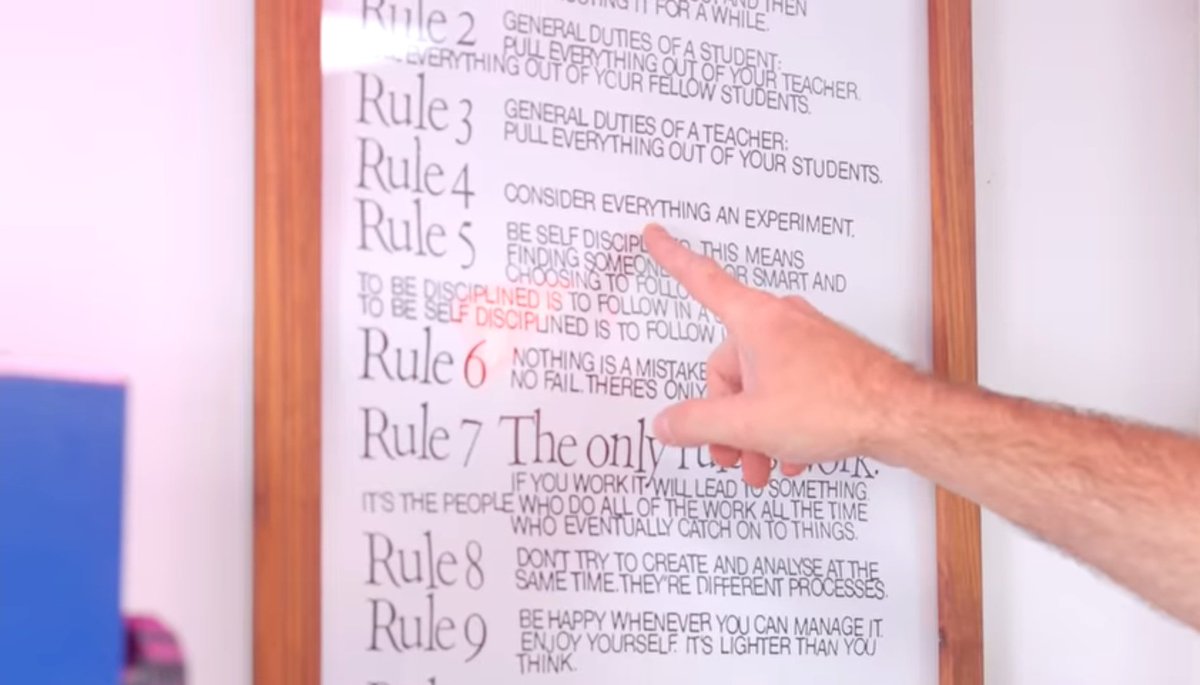 IT FOR A WHILE.
Rule 2 GENERAL DUTIES OF A STUDENT:
PULL EVERYTHING OUT OF YOUR TEACHER.
EVERYTHING OUT OF YOUR FELLOW STUDENTS.
Rule 3 GENERAL DUTIES OF A TEACHER:
PULL EVERYTHING OUT OF YOUR STUDENTS.
Rule 4 CONSIDER EVERYTHING AN EXPERIMENT.
Rule 5 BE SELF DISCIPL THIS MEANS
FINDING SOMEONE OR SMART AND
CHOOSING TO FOLLO
TO BE DISCIPLINED IS TO FOLLOW IN A
TO BE SELF DISCIPLINED IS TO FOLLOW
Rule 6 NOTHING IS A MISTAKE
NO FAIL. THERE'S ONLY
Rule 7 The only
IF YOU WORK IT WILL LEAD TO SOMETHING.
IT'S THE PEOPLE WHO DO ALL OF THE WORK ALL THE TIME
WHO EVENTUALLY CATCH ON TO THINGS.
Rule 8 DON'T TRY TO CREATE AND ANALYSE AT THE
SAME TIME. THEY'RE DIFFERENT PROCESSES.
Rule 9 BE HAPPY WHENEVER YOU CAN MANAGE IT.
ENJOY YOURSELF. IT'S LIGHTER THAN YOU
THINK.